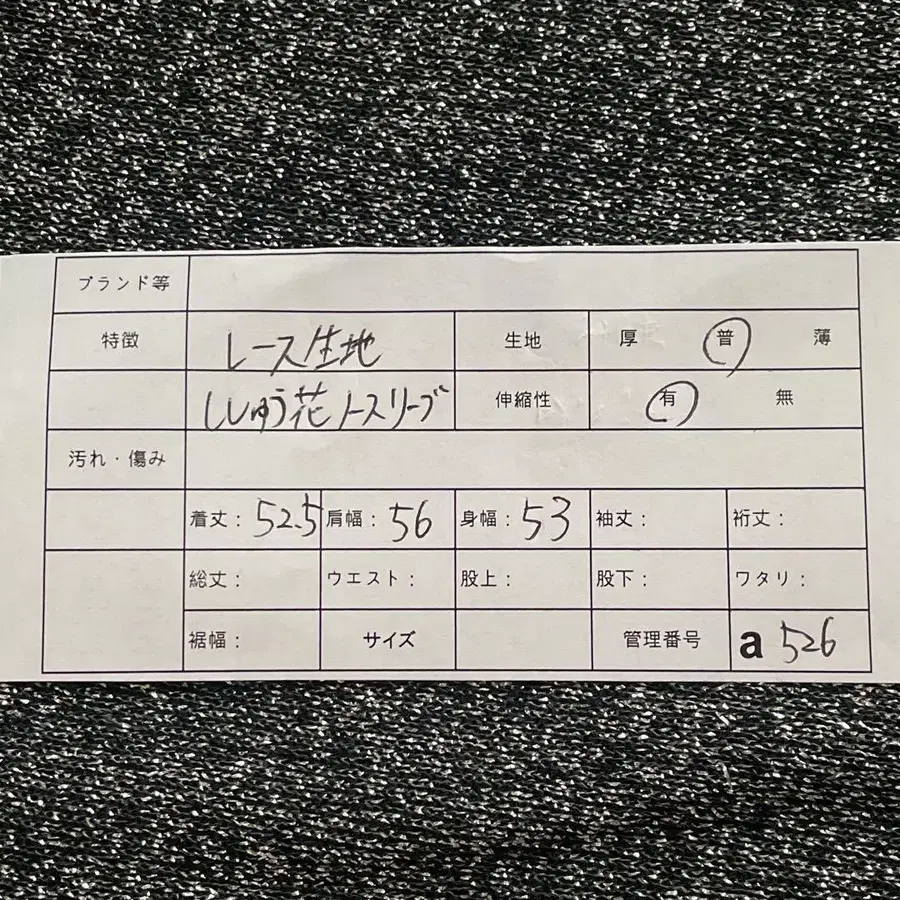 ブランド等
特徴 レース生地 生地 厚 普 薄
ししゅう花 ノースリーブ 伸縮性 有 無
汚れ・傷み
着丈: 52.5 肩幅: 56 身幅: 53 袖丈: 裄丈:
総丈: ウエスト: 股上: 股下: ワタリ:
裾幅: サイズ 管理番号 a 526